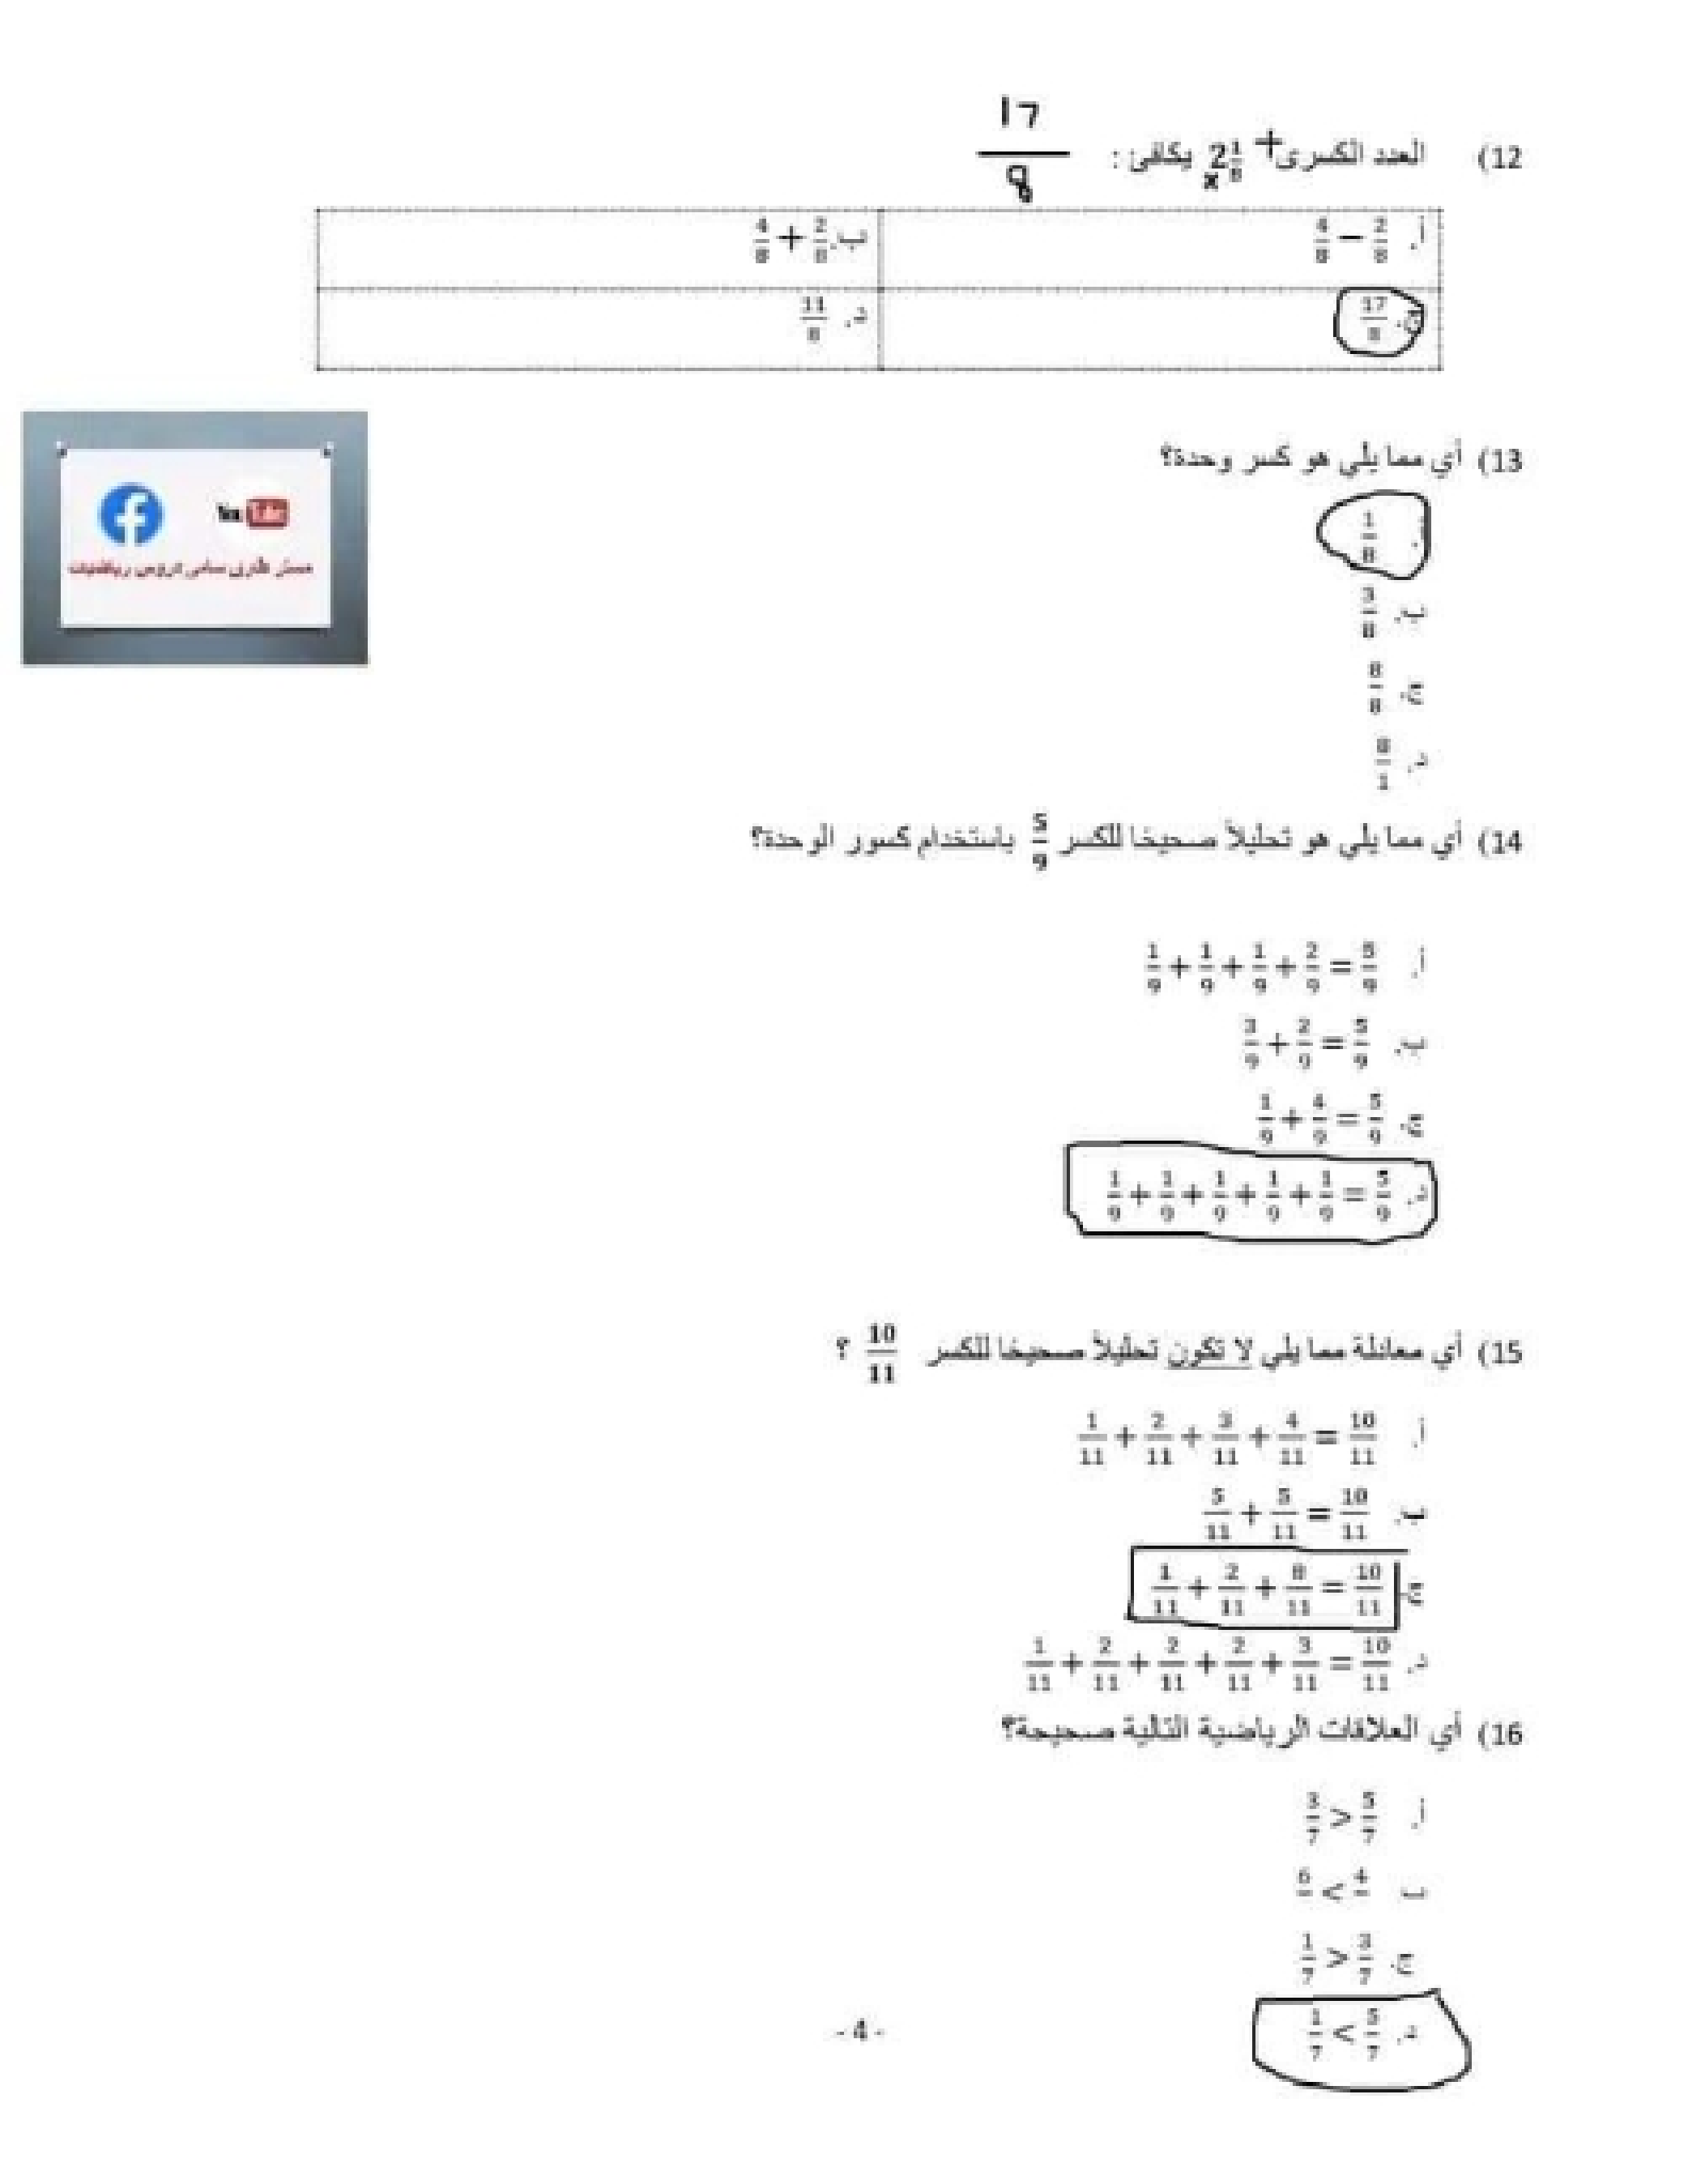 12) العدد الكسرى + 2 1/8 يكافئ : 17/8
x
أ. 2/8 − 4/8
ب. 2/8 + 4/8
ج. 17/8
د. 11/8
You Tube
مستر طارق سامى دروس رياضيات
13) أي مما يلي هو كسر وحدة؟
أ. 1/8
ب. 3/8
ج. 8/8
د. 8/1
14) أي مما يلي هو تحليلاً صحيحًا للكسر 5/9 باستخدام كسور الوحدة؟
أ. 1/9 + 1/9 + 1/9 + 2/9 = 5/9
ب. 3/9 + 2/9 = 5/9
ج. 1/9 + 4/9 = 5/9
د. 1/9 + 1/9 + 1/9 + 1/9 + 1/9 = 5/9
15) أي معادلة مما يلي لا تكون تحليلاً صحيحًا للكسر 10/11 ؟
أ. 1/11 + 2/11 + 3/11 + 4/11 = 10/11
ب. 5/11 + 5/11 = 10/11
ج. 1/11 + 2/11 + 8/11 = 10/11
د. 1/11 + 2/11 + 2/11 + 2/11 + 3/11 = 10/11
16) أي العلاقات الرياضية التالية صحيحة؟
أ. 3/7 > 5/7
ب 6 < 4
ج. 1/7 > 3/7
د. 1/7 < 5/7
- 4 -